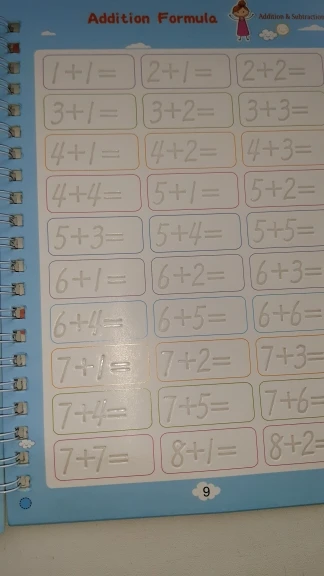 Addition Formula
Addition & Subtraction
1+1= 2+1= 2+2=
3+1= 3+2= 3+3=
4+1= 4+2= 4+3=
4+4= 5+1= 5+2=
5+3= 5+4= 5+5=
6+1= 6+2= 6+3=
6+4= 6+5= 6+6=
7+1= 7+2= 7+3=
7+4= 7+5= 7+6=
7+7= 8+1= 8+2=
9